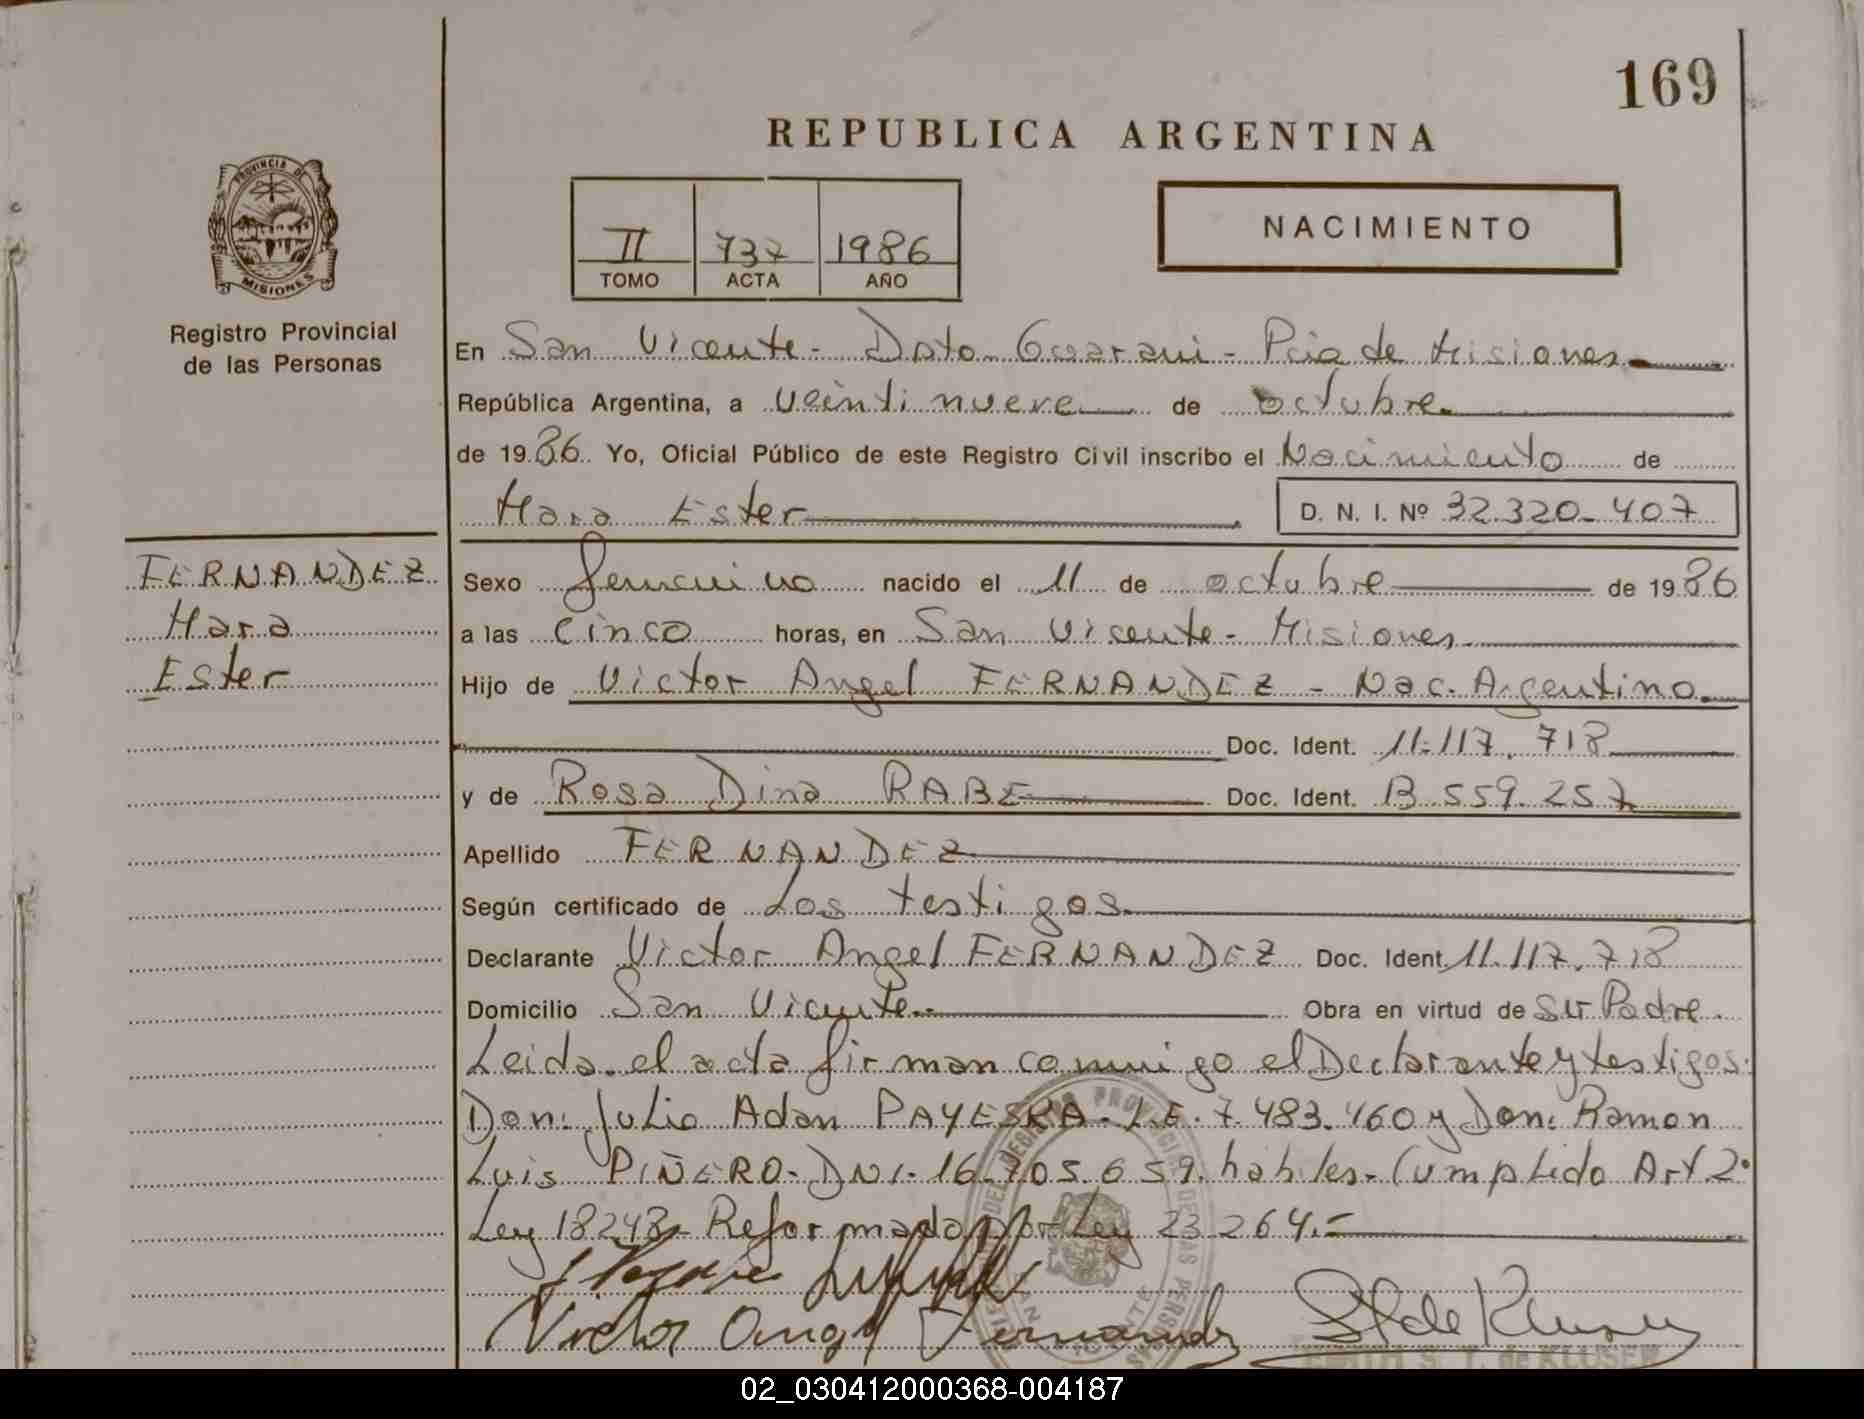 169
REPUBLICA ARGENTINA
PROVINCIA DE
MISIONES
Registro Provincial
de las Personas
II 737 1986
TOMO ACTA AÑO
NACIMIENTO
En San Vicente - Dpto Guarani - Pcia de Misiones
República Argentina, a veintinueve de octubre
de 1986 Yo, Oficial Público de este Registro Civil inscribo el Nacimiento de
Mara Ester D. N. I. Nº 32.320.407
FERNANDEZ
Mara
Ester
Sexo femenino nacido el 11 de octubre de 1986
a las cinco horas, en San Vicente - Misiones
Hijo de Victor Angel FERNANDEZ - Nac. Argentino.
Doc. Ident. 11.117.718
y de Rosa Dina RABE Doc. Ident. B 559.257
Apellido FERNANDEZ
Según certificado de Los testigos
Declarante Victor Angel FERNANDEZ Doc. Ident. 11.117.718
Domicilio San Vicente Obra en virtud de su Padre.
Leida el acta firman conmigo el Declarante y testigos:
Don: Julio Adan PAYESKA - L.E. 7.483.160 y Don: Ramon
Luis PIÑERO - DNI. 16.705.659. habiles. Cumplido Art 2º
Ley 18248 - Reformada por Ley 23264.=
Victor Angel Fernandez
S T de Klusen
S. T. de KLUSEN
02_030412000368-004187